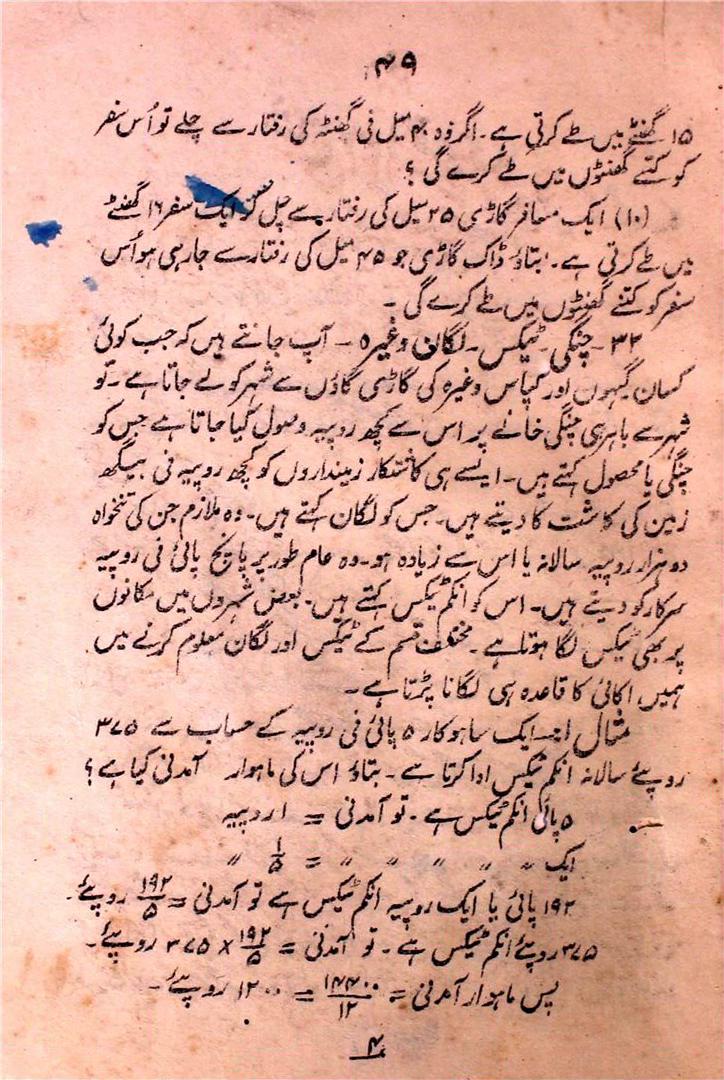 ۴۹
۱۵ گھنٹے میں طے کرتی ہے۔ اگر وہ ۴۰ میل فی گھنٹہ کی رفتار سے چلے تو اُس سفر
کو کتنے گھنٹوں میں طے کرے گی ؟
(۱۰) ایک مسافر گاڑی ۲۵ میل کی رفتار سے چل کر ایک سفر ۱۶ گھنٹے
میں طے کرتی ہے۔ بتاؤ ڈاک گاڑی جو ۴۵ میل کی رفتار سے جا رہی ہو اُس
سفر کو کتنے گھنٹوں میں طے کرے گی ۔
۳۲ ۔ چنگی ۔ ٹیکس ۔ لگان وغیرہ ۔ آپ جانتے ہیں کہ جب کوئی
کسان گیہوں اور کپاس وغیرہ کی گاڑی گاؤں سے شہر کو لے جاتا ہے ۔ تو
شہر سے باہر ہی چنگی خانے پر اس سے کچھ روپیہ وصول کیا جاتا ہے جس کو
چنگی یا محصول کہتے ہیں۔ ایسے ہی کاشتکار زمینداروں کو کچھ روپیہ فی بیگھ
زمین کی کاشت کا دیتے ہیں۔ جس کو لگان کہتے ہیں۔ وہ ملازم جن کی تنخواہ
دو ہزار روپیہ سالانہ یا اس سے زیادہ ہو۔ وہ عام طور پر پانچ پائی فی روپیہ
سرکار کو دیتے ہیں۔ اس کو انکم ٹیکس کہتے ہیں۔ بعض شہروں میں مکانوں
پر بھی ٹیکس لگا ہوتا ہے ۔ مختلف قسم کے ٹیکس اور لگان معلوم کرنے میں
ہمیں اکائی کا قاعدہ ہی لگانا پڑتا ہے ۔
مثال ۱:۔ ایک ساہوکار ۵ پائی فی روپیہ کے حساب سے ۳۷۵
روپئے سالانہ انکم ٹیکس ادا کرتا ہے ۔ بتاؤ اس کی ماہوار آمدنی کیا ہے ؟
۵ پائی انکم ٹیکس ہے ۔ تو آمدنی = ۱ روپیہ
ایک 〃 〃 〃 〃 〃 = ۱/۵ 〃
۱۹۲ پائی یا ایک روپیہ انکم ٹیکس ہے تو آمدنی = ۱۹۲/۵ روپئے۔
۳۷۵ روپئے انکم ٹیکس ہے ۔ تو آمدنی = ۱۹۲/۵ × ۳۷۵ روپئے۔
پس ماہوار آمدنی = ۱۴۴۰۰/۱۲ = ۱۲۰۰ روپئے ۔
۴